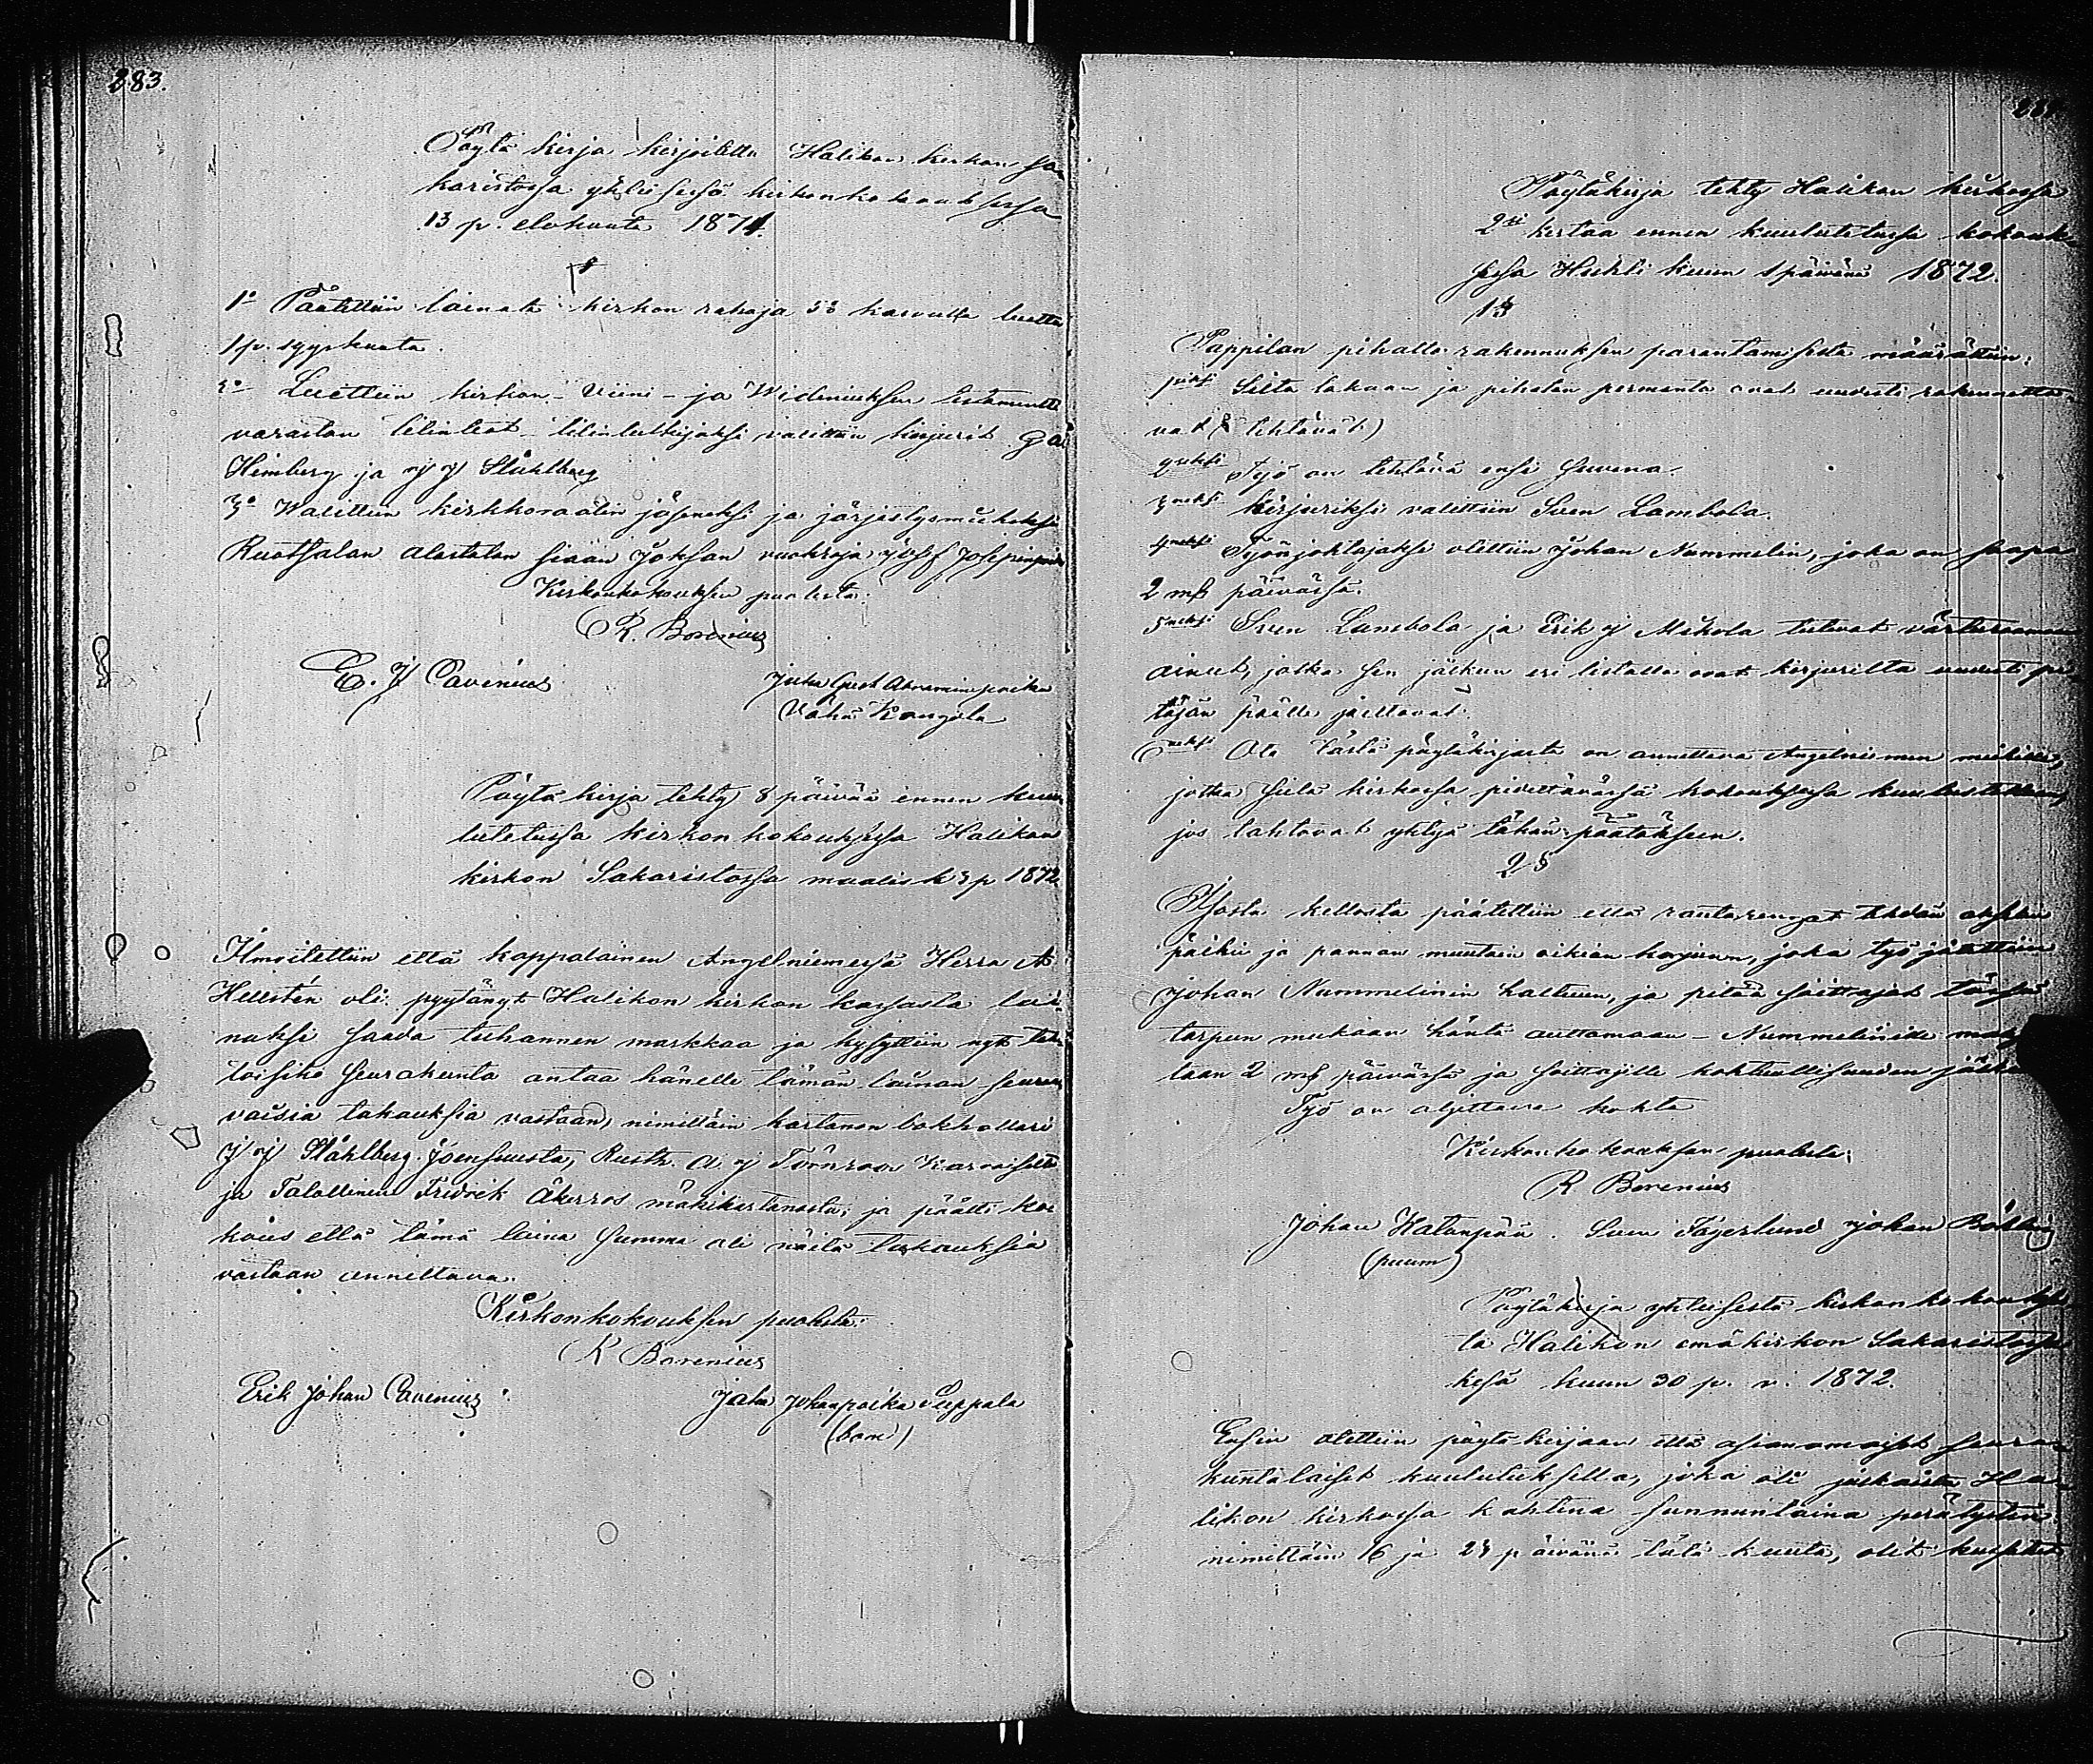 283.
Pöytä kirja kirjoitettu Halikon kirkon sa
karistossa yhteisessä kirkonkokouksessa
13 p. elokuuta 1871.
1o Päätettiin lainata kirkon rahoja 5% kasvulla luettu
1 p. syyskuuta.
2o Luettiin kirkon- viini- ja Wideniuksen testamentti
varaston tilinteot - tilintutkijaksi valittiin kirjurit
Heimberg ja J J Ståhlberg
3o Walittiin kirkkoraatin jäseneksi ja järjestysmieheksi
Ruotsalan Alastalon siaan Joksan vuokraja Josef Josefinpoika
Kirkonkokouksen puolesta:
R. Borenius
E. J Cavenius
Juha Gust Abraminpoika
Vähä Kongola
Pöytä kirja tehty 8 päivää ennen kuu
lutetussa kirkon kokouksessa Halikon
kirkon Sakaristossa maalis k 3 p 1872
Ilmoitettiin että kappalainen Angelniemessä Herra A
Hellstén oli pyytänyt Halikon kirkon kassasta lai
naksi saada tuhannen markkaa ja kysyttiin nyt tah
toisiko seurakunta antaa hänelle tämän lainan seuraa
vaisia takauksia vastaan, nimittäin kartanon bokhollari
J J Ståhlberg Joensuusta, Rusth. A J Törnroos Karvaiselta
ja Talollinen Fridrik Åkerros mäkikartanosta; ja päätti ko
kous että tämä laina summa oli näitä takauksia
vastaan annettava.
Kirkonkokouksen puolesta:
R Borenius
Erik Johan Cavenius
Juha Johanpoika Seppälä
Pöytäkirja tehty Halikon kirkossa
2si kertaa ennen kuulutetussa kokouk
sessa Huhti kuun 1 päivänä 1872.
1 §
Pappilan pihalla rakennuksen parantamisesta määrättiin:
1seksi Silta lakaan ja pihatan permanto ovat uudesti rakennetta
vat (tehtävät)
2seksi Työ on tehtävä ensi suvena.
3neksi kirjuriksi valittiin Sven Lambola.
4neksi Työnjohtajaksi otettiin Johan Nummelin, joka on saapa
2 mk päivässä.
5neksi Sven Lambola ja Erik J Mikola tulevat
aineet, jotka sen jälkeen eri listalla ovat kirjurilta uudesti pi
täjän päälle jaettavat.
6neksi Ote tästä pöytäkirjasta on annettava Angelniemen miehille,
jotka sielä kirkossa pidettävässä kokouksessa kuulustellaan,
jos tahtovat yhtyä tähän päätökseen.
2 §
Isosta kellosta päätettiin että rautarengat tehdän
päihin ja pannan muutoin oikian korjuun, joka työ jäättiin
Johan Nummelinin haltuun, ja pitää soittajat tässä
tarpeen mukaan häntä auttamaan - Nummelinille mak
taan 2 mk päivässä ja soittajille kohtuullisuuden
Työ on aljettava kohta
Kirkonkokouksen puolesta:
R Borenius
Johan Hatanpää. Sven Fagerlund Johan
(puum)
Pöytäkirja yhteisestä kirkon kokoukses
ta Halikon emäkirkon Sakaristossa
kesä kuun 30 p. v. 1872.
Ensin otettiin pöytä kirjaan että asianomaiset seura
kuntalaiset kuulutuksella, joka oli julkaistu Ha
likon kirkossa kahtena sunnuntaina perätysten
nimittäin 16 ja 23 päivänä tätä kuuta, olit kutsutut